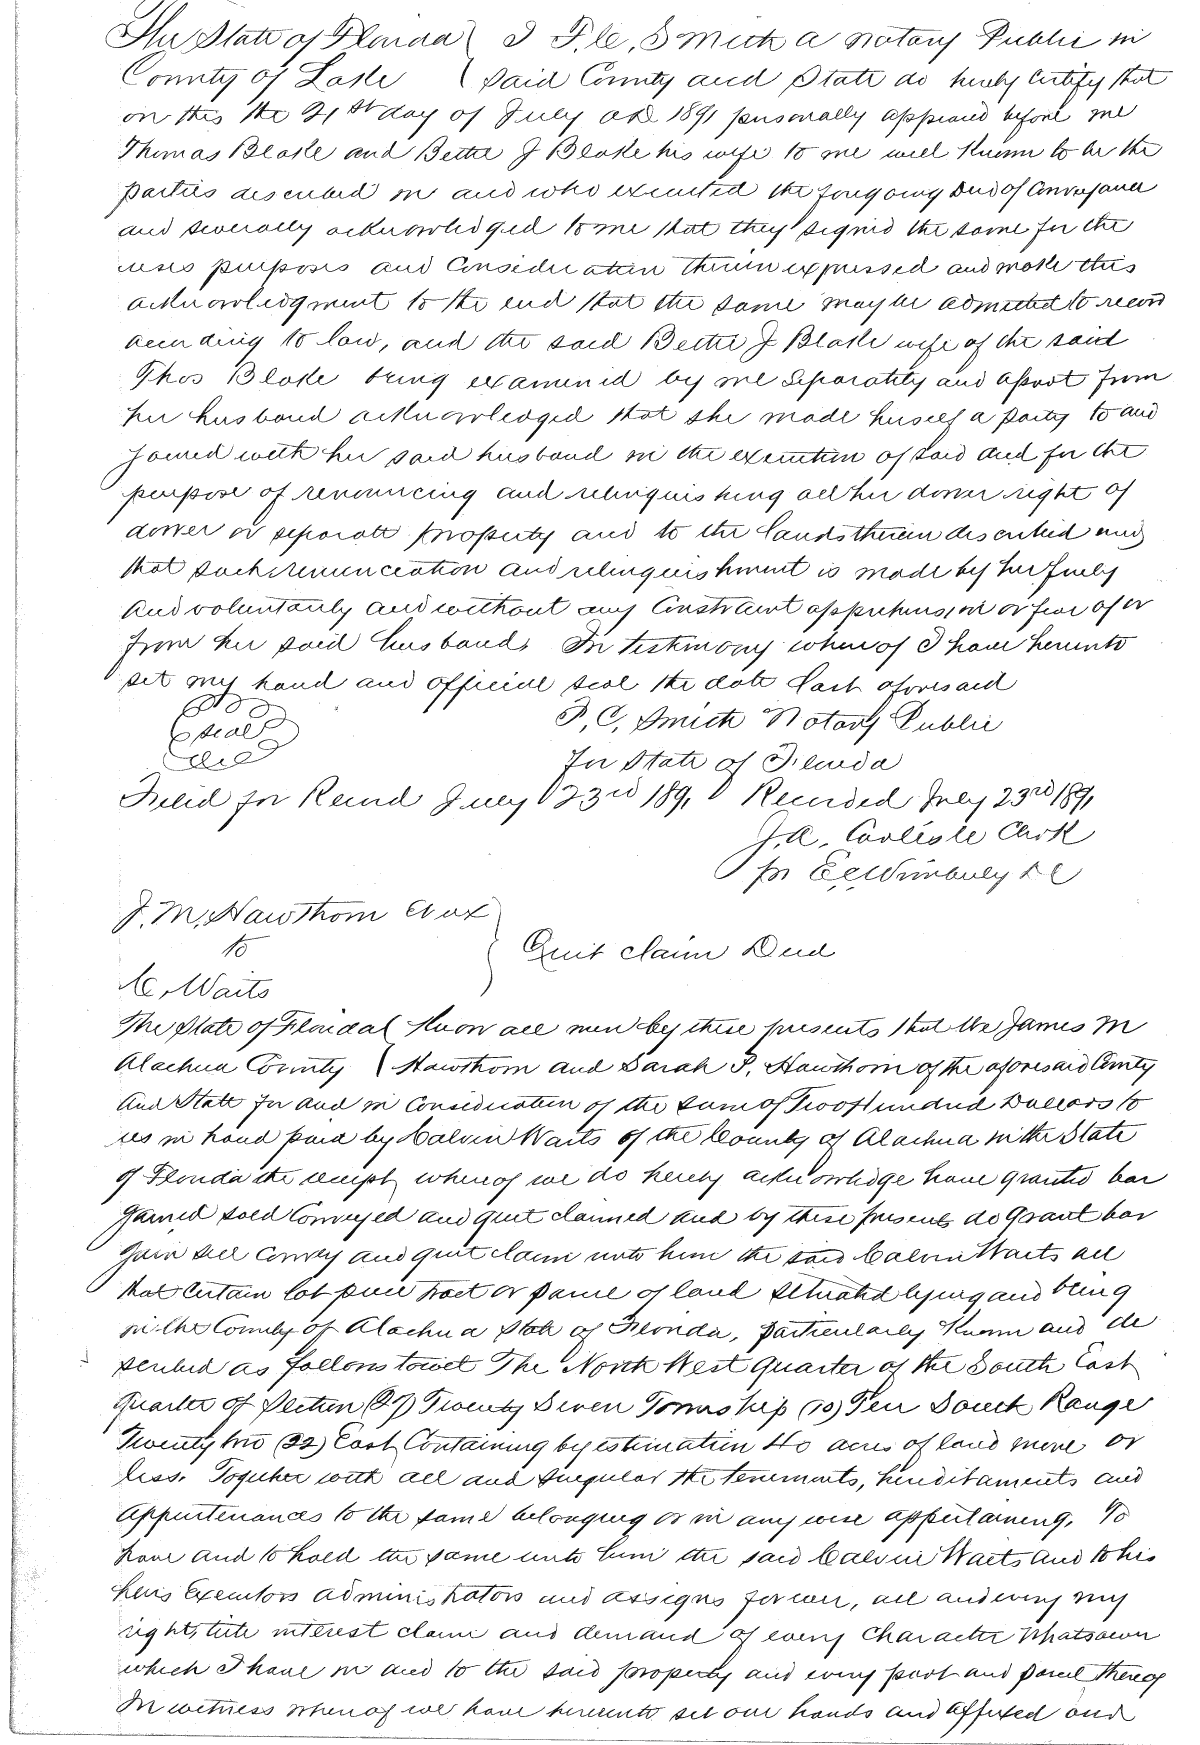 The State of Florida I F. C. Smith a Notary Public in
County of Lake Said County and State do hereby Certify that
on this the 21st day of July AD 1891 personally appeared before me
Thomas Blake and Bettie J Blake his wife to me well Known to be the
parties described in and who executed the foregoing Deed of Conveyance
and severally acknowledged to me that they signed the same for the
uses purposes and Consideration therein expressed and make this
acknowledgment to the end that the same may be admitted to record
according to law, and the said Bettie J Blake wife of the said
Thos Blake being examined by me Separately and apart from
her husband acknowledged that she made herself a party to and
joined with her said husband in the execution of said deed for the
purpose of renouncing and relinquishing all her dower right of
dower or separate property and to the lands therein described and
that such renunciation and relinquishment is made by her freely
And voluntarily and without any Constraint apprehension or fear of or
from her said husband. In testimony whereof I have hereunto
set my hand and official seal the date last aforesaid
F, C, Smith Notary Public
seal
For State of Florida
Filed for Record July 23rd 1891 Recorded July 23rd 1891
J. A. Carlisle Clerk
Pr E. C. Wimberly D C
J. M. Hawthorn et ux
to
Quit claim Deed
C. Waits
The State of Florida Know all men by these presents that We James M
Alachua County Hawthorn and Sarah P. Hawthorn of the aforesaid County
And State for and in Consideration of the sum of Two Hundred Dollars to
us in hand paid by Calvin Waits of the County of Alachua in the State
of Florida the receipt whereof we do hereby acknowledge have granted bar
gained sold Conveyed and quit claimed and by these presents do Grant bar
gain sell Convey and quit claim unto him the said Calvin Waits all
that Certain lot piece tract or parcel of land situated lying and being
in the County of Alachua State of Florida, particularly Known and de
scribed as follows towit The North West Quarter of the South East
Quarter of Section (27) Twenty Seven Township (10) Ten South Range
Twenty two (22) East Containing by estimation 40 acres of land more or
less. Together with all and singular the tenements, hereditaments and
Appurtenances to the same belonging or in any wise appertaining. To
have and to hold the same unto him the said Calvin Waits and to his
heirs Executors administrators and assigns forever, all and every my
right, title interest claim and demand of every Character Whatsoever
which I have in and to the said property and every part and parcel thereof
In witness whereof we have hereunto set our hands and affixed our